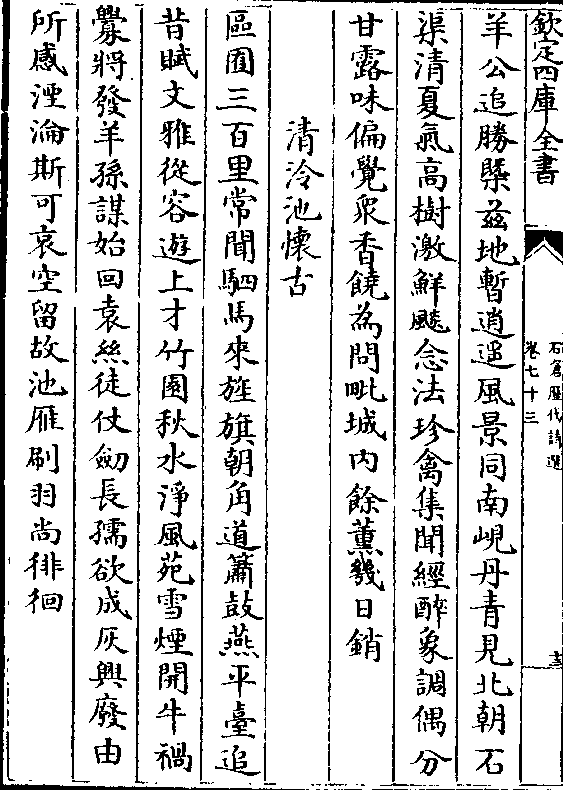 欽定四庫全書
石倉歷代詩選
卷七十三
羊公追勝槩茲地暫逍遥風景同南峴丹青見北朝石
渠清夏氣高樹激鮮飈念法珍禽集聞經醉象調偶分
甘露味偏覺衆香饒為問毗城内餘薰幾日銷
清泠池懷古
區囿三百里常聞駟馬來旌旗朝角道簫鼓燕平臺追
昔賦文雅從容遊上才竹園秋水淨風苑雪煙開牛禍
釁將發羊孫謀始回袁絲徒仗劒長孺欲成灰興廢由
所感湮淪斯可哀空留故池雁刷羽尚徘徊